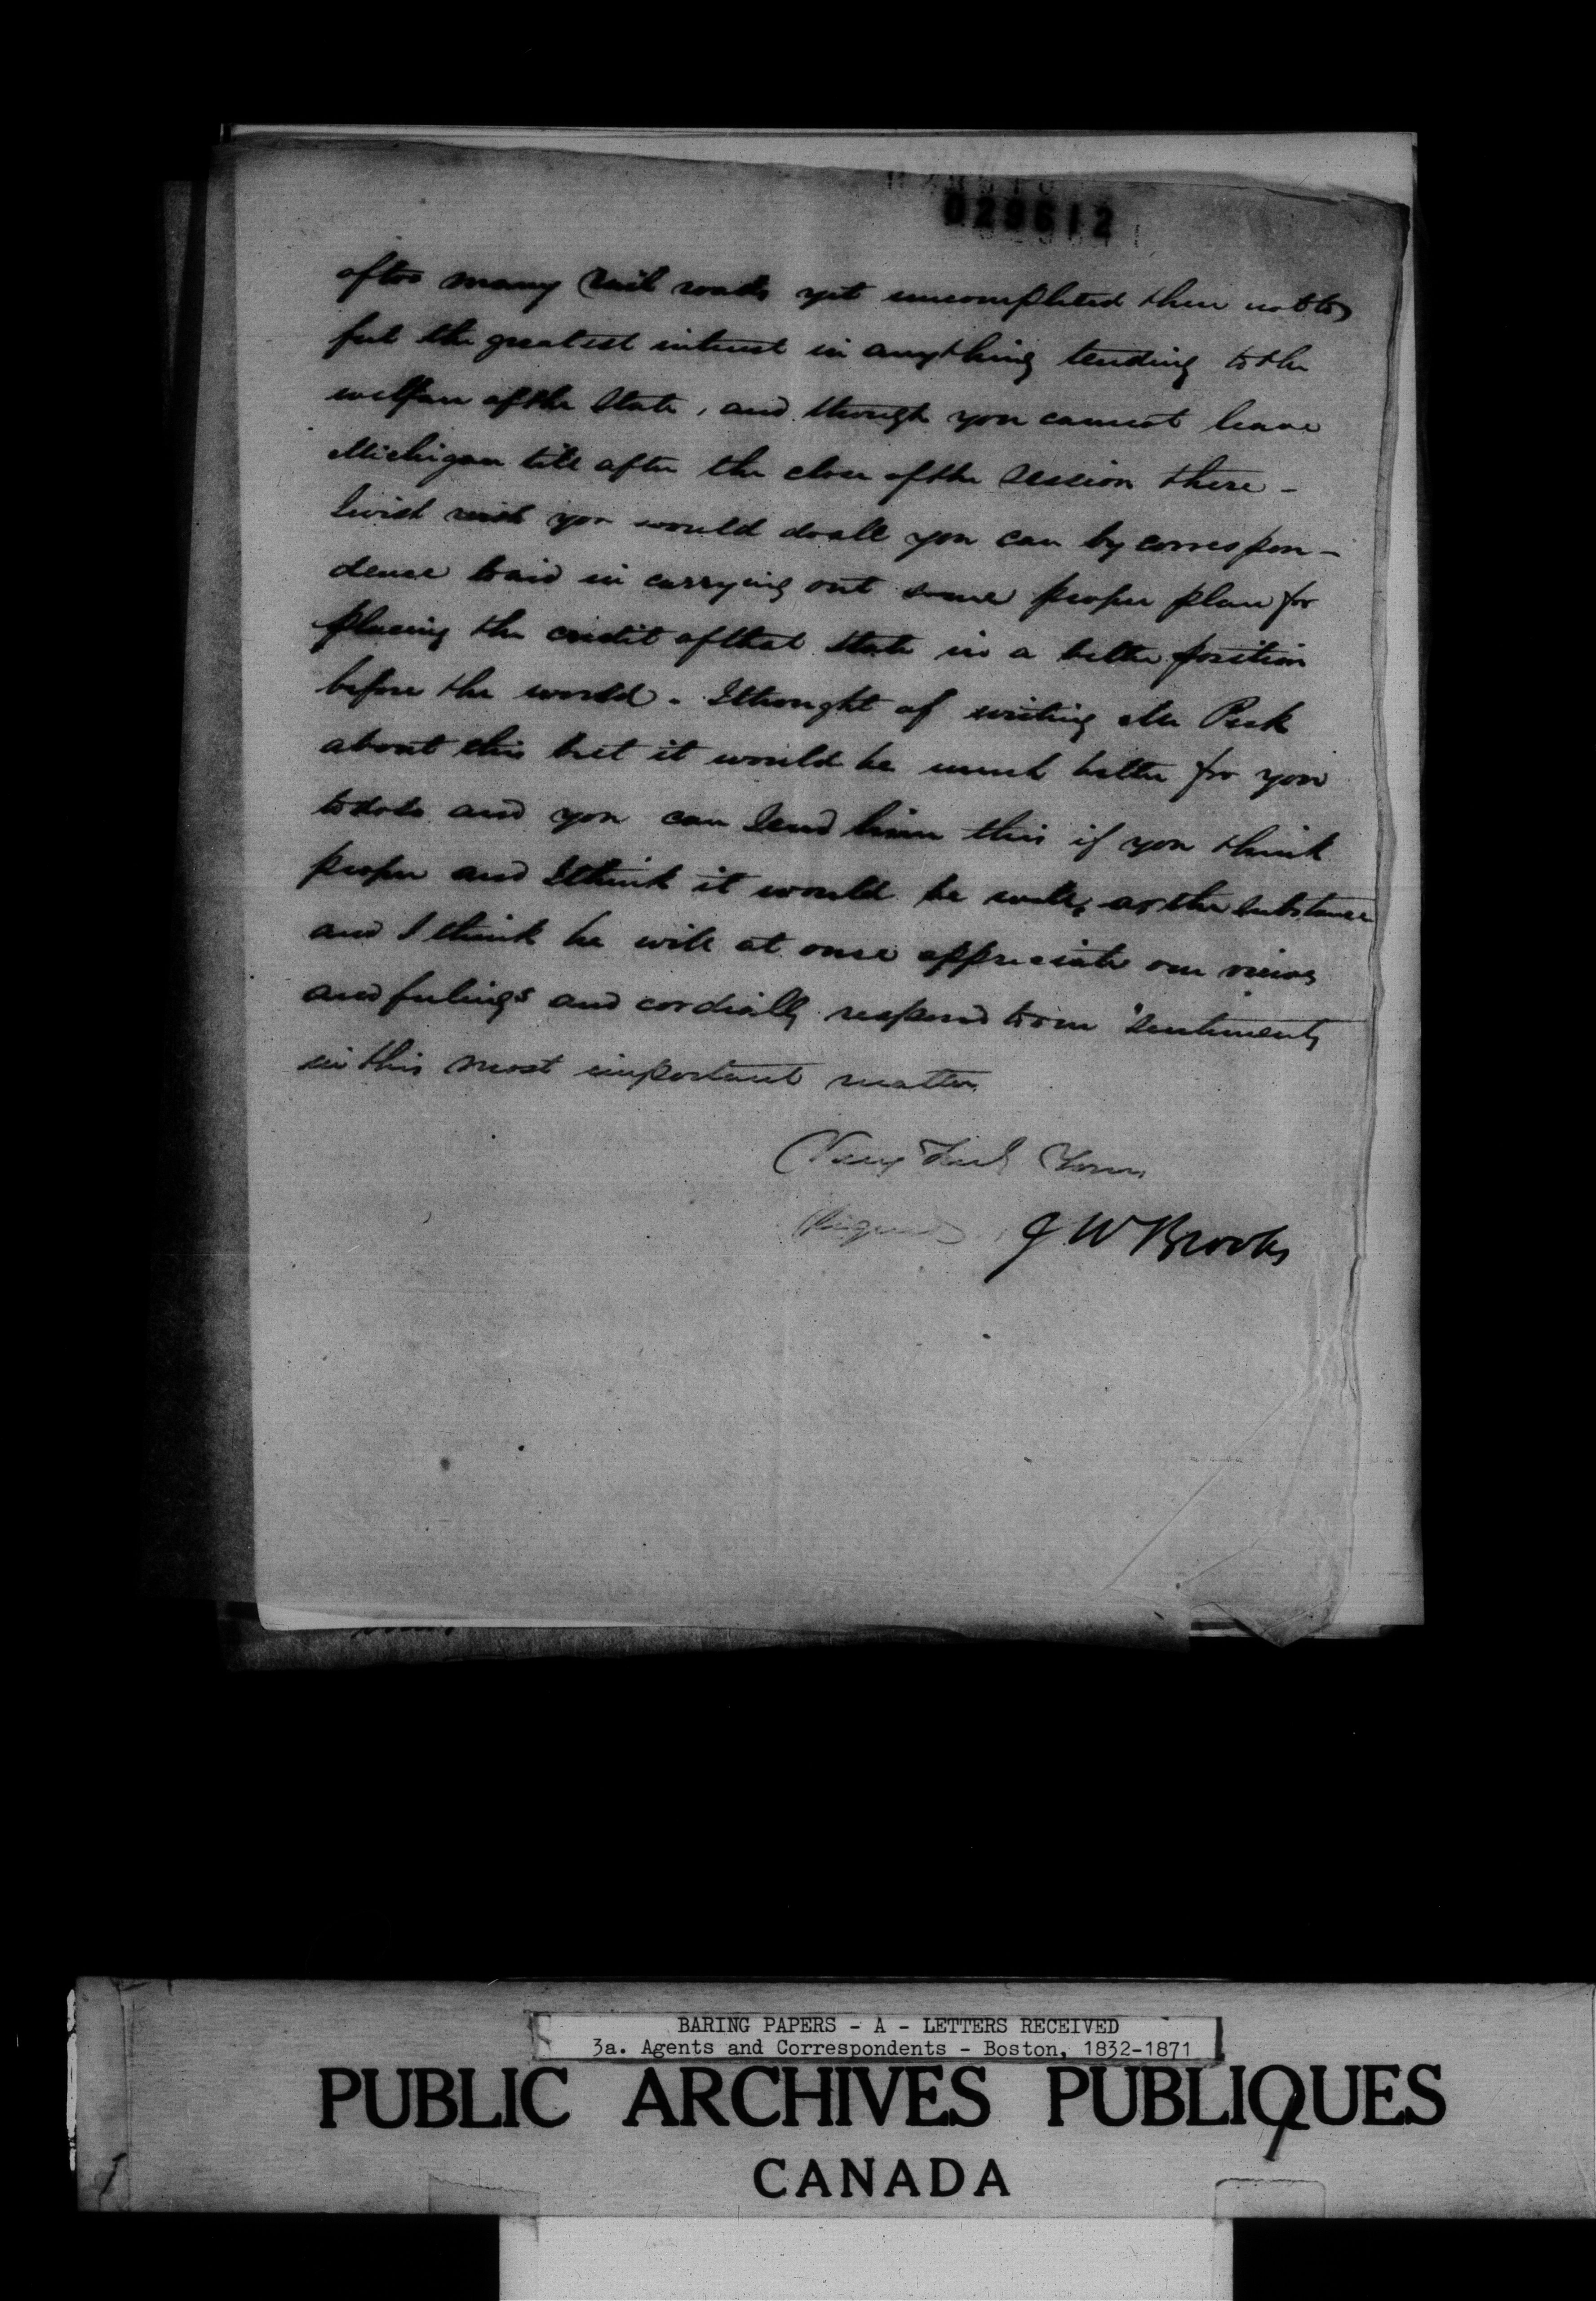 029612
of too many Rail roads yet uncompleted there not to
feel the greatest interest in anything tending to the
welfare of the State, and though you cannot leave
Michigan till after the close of the Session there -
I wish you would do all you can by correspon-
dence to aid in carrying out some proper plan for
placing the credit of that State in a better position
before the world. I thought of writing Mr Peck
about this but it would be much better for you
to do so and you can send him this if you think
proper and I think it would be well, as the substance
and I think he will at once appreciate our views
and feelings and cordially respond to our sentiments
in this most important matter,
Very Truly Yours
(Signed) J W Brooks
BARING PAPERS - A - LETTERS RECEIVED
3a. Agents and Correspondents - Boston, 1832-1871
PUBLIC ARCHIVES PUBLIQUES
CANADA